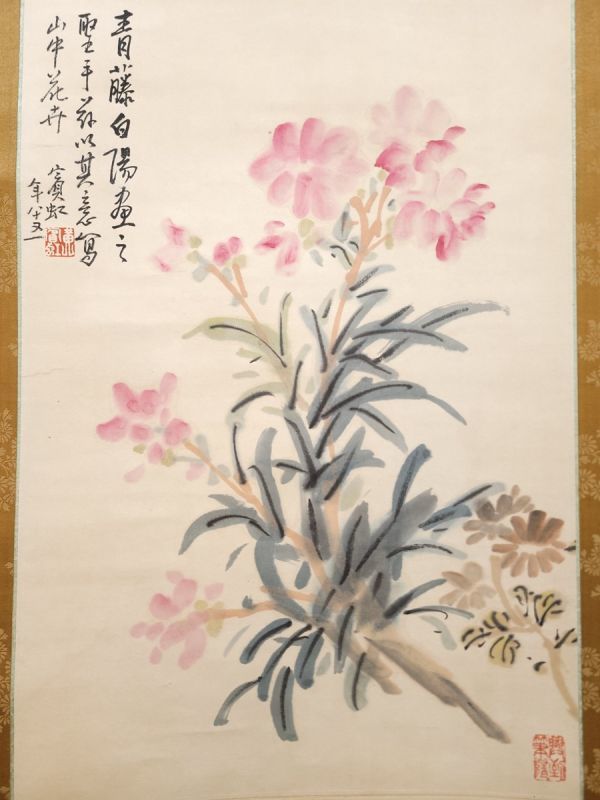 青藤白陽畫之
聖手茲以其意寫
山中花卉
賓虹
年八十又一